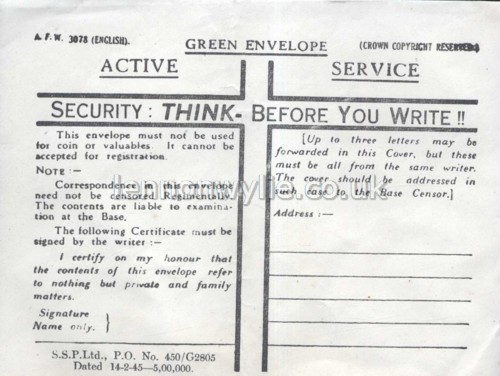 A. F. W. 3078 (ENGLISH).
GREEN ENVELOPE
(CROWN COPYRIGHT RESERVED)
ACTIVE
SERVICE
SECURITY : THINK - BEFORE YOU WRITE !!
This envelope must not be used
for coin or valuables. It cannot be
accepted for registration.
NOTE :—
Correspondence in this envelope
need not be censored Regimentally.
The contents are liable to examina-
tion at the Base.
The following Certificate must be
signed by the writer :—
I certify on my honour that
the contents of this envelope refer
to nothing but private and family
matters.
Signature
Name only.
S.S.P.Ltd., P.O. No. 450/G2805
Dated 14-2-45—5,00,000.
[Up to three letters may be
forwarded in this Cover, but these
must be all from the same writer.
The cover should be addressed in
such case to the Base Censor.]
Address :—
lennonwylie.co.uk